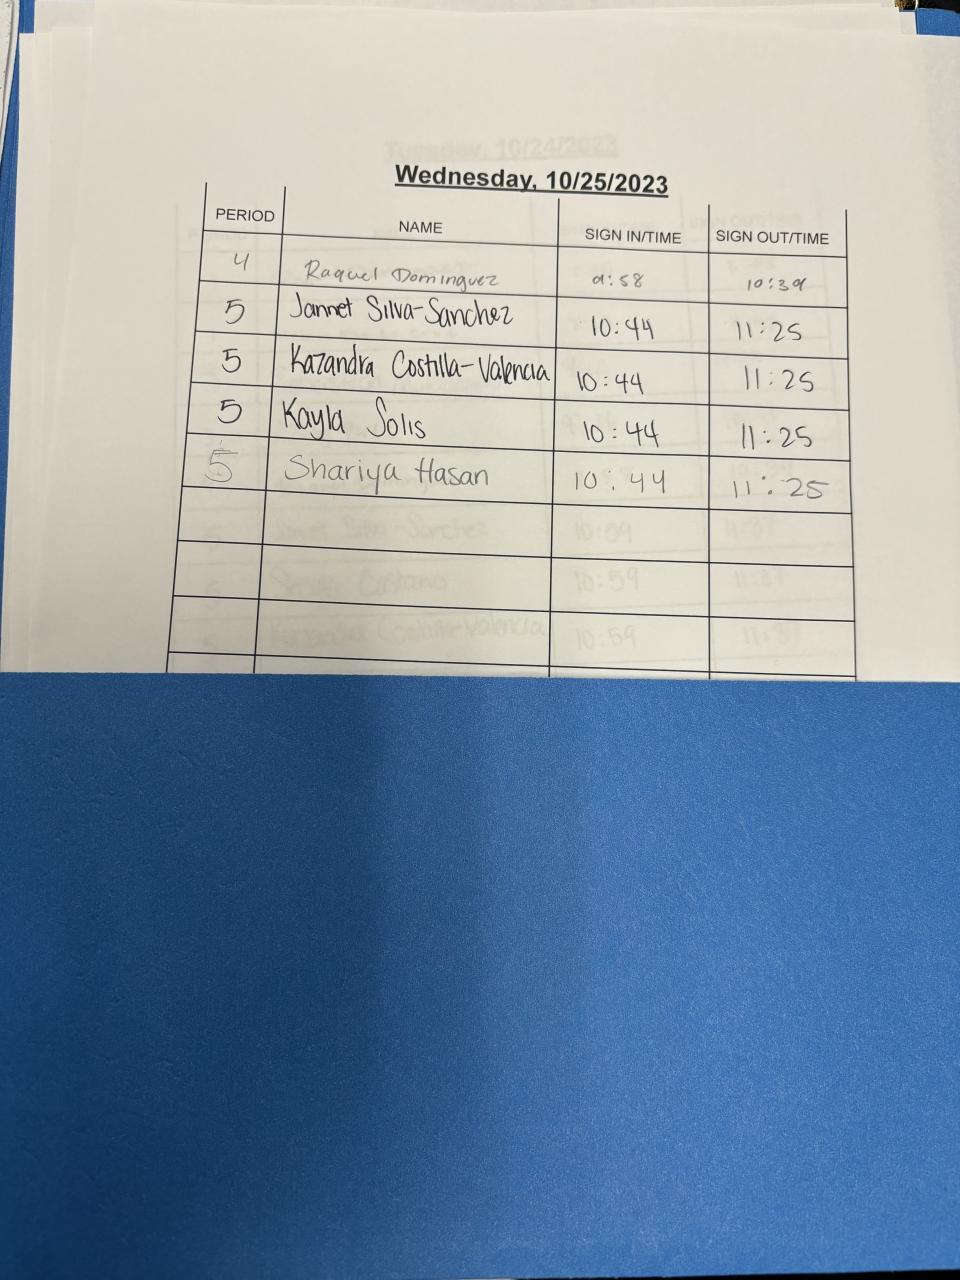 Tuesday, 10/24/2023
Wednesday, 10/25/2023
PERIOD NAME SIGN IN/TIME SIGN OUT/TIME
4 Raquel Dominguez 9:58 10:39
5 Jannet Silva-Sanchez 10:44 11:25
5 Kazandra Costilla-Valencia 10:44 11:25
5 Kayla Solis 10:44 11:25
5 Shariya Hasan 10:44 11:25